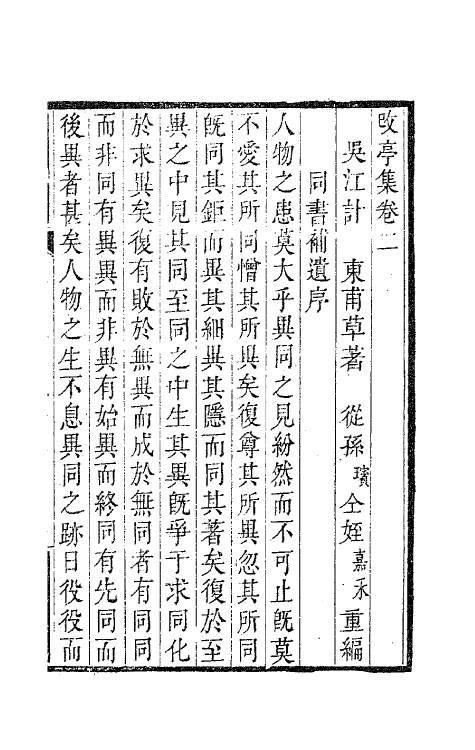 改亭集卷二
吳江計　東甫草著　從孫璸仝姪嘉禾重編
同書補遺序
人物之患莫大乎異同之見紛然而不可止旣莫
不愛其所同憎其所異矣復尊其所異忽其所同
旣同其鉅而異其細異其隱而同其著矣復於至
異之中見其同至同之中生其異旣爭于求同化
於求異矣復有敗於無異而成於無同者有同同
而非同有異異而非異有始異而終同有先同而
後異者甚矣人物之生不息異同之跡日役役而